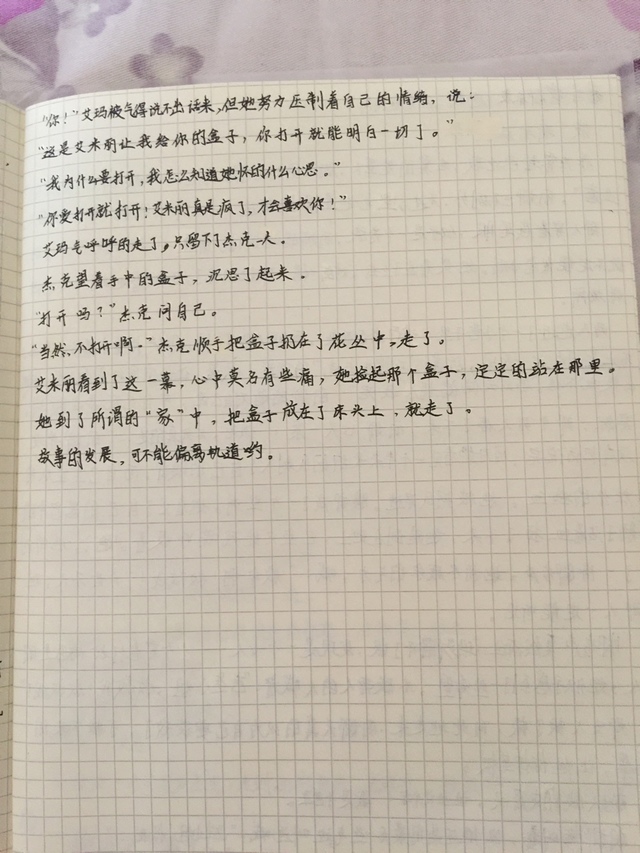 “你！”艾玛被气得说不出话来，但她努力压制着自己的情绪，说：
“这是艾米丽让我给你的盒子，你打开就能明白一切了。”
“我为什么要打开，我怎么知道她怀的什么心思。”
“你爱打开就打开！艾米丽真是疯了，才会喜欢你！”
艾玛气呼呼的走了，只留下了杰克一人。
杰克望着手中的盒子，沉思了起来。
“打开吗？”杰克问自己。
“当然不打开啊。”杰克顺手把盒子扔在了花丛中，走了。
艾米丽看到了这一幕，心中莫名有些痛，她捡起那个盒子，定定的站在那里。
她到了所谓的“家”中，把盒子放在了床头上，就走了。
故事的发展，可不能偏离轨道哟。